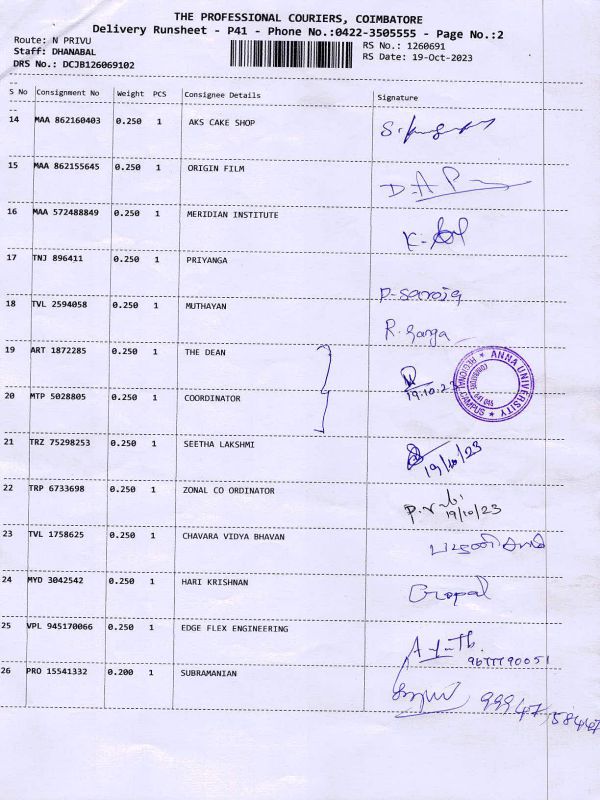 THE PROFESSIONAL COURIERS, COIMBATORE
Delivery Runsheet - P41 - Phone No.:0422-3505555 - Page No.:2
Route: N PRIVU
RS No.: 1260691
Staff: DHANABAL
RS Date: 19-Oct-2023
DRS No.: DCJB126069102
S No Consignment No Weight PCS Consignee Details Signature
14 MAA 862160403 0.250 1 AKS CAKE SHOP
15 MAA 862155645 0.250 1 ORIGIN FILM
16 MAA 572488849 0.250 1 MERIDIAN INSTITUTE
17 TNJ 896411 0.250 1 PRIYANGA
P. Saroja
18 TVL 2594058 0.250 1 MUTHAYAN
R. Ganga
19 ART 1872285 0.250 1 THE DEAN
19.10.23
ANNA UNIVERSITY
REGIONAL CAMPUS
20 MTP 5028805 0.250 1 COORDINATOR
21 TRZ 75298253 0.250 1 SEETHA LAKSHMI
19/10/23
22 TRP 6733698 0.250 1 ZONAL CO ORDINATOR
19/10/23
23 TVL 1758625 0.250 1 CHAVARA VIDYA BHAVAN
24 MYD 3042542 0.250 1 HARI KRISHNAN
Gopal
25 VPL 945170066 0.250 1 EDGE FLEX ENGINEERING
9677790051
26 PRO 15541332 0.200 1 SUBRAMANIAN
99947 58447